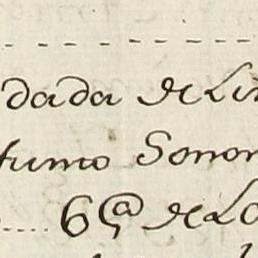 dada de Lin
fumo Sonor
6ª de Lo